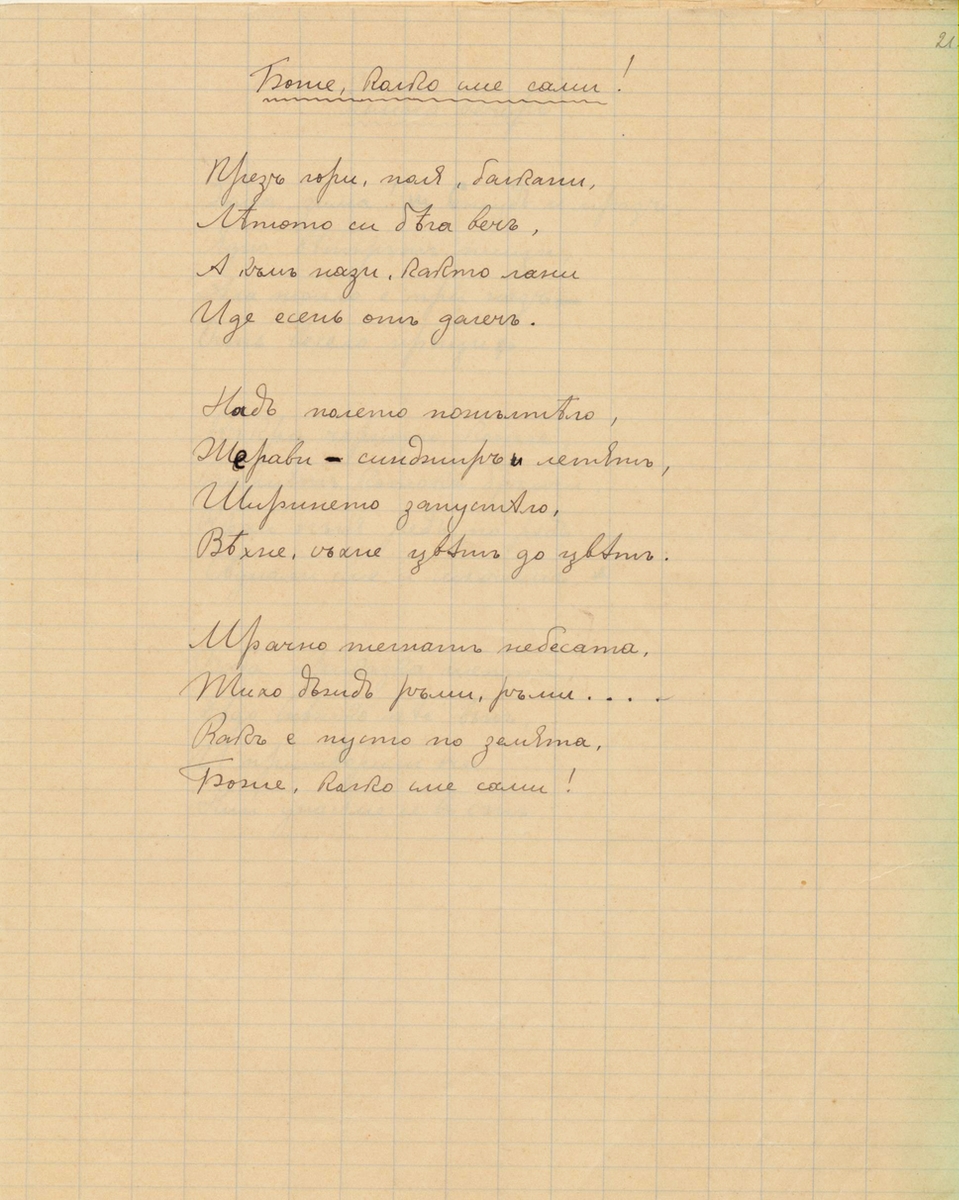 21
Боже, колко сме сами!
Презъ гори, поля, балкани,
Лѣтото си бѣга вечъ,
А къмъ нази, както лани
Иде есень отъ далечъ.
Надъ полето пожълтѣло,
Жерави - синджиръ и летятъ,
Ширинето запустѣло,
Вѣхне, съхне цвѣтъ до цвѣтъ.
Мрачно тегнатъ небесата,
Тихо дъждъ ръми, ръми....
Какъ е пусто по земята,
Боже, колко сме сами!